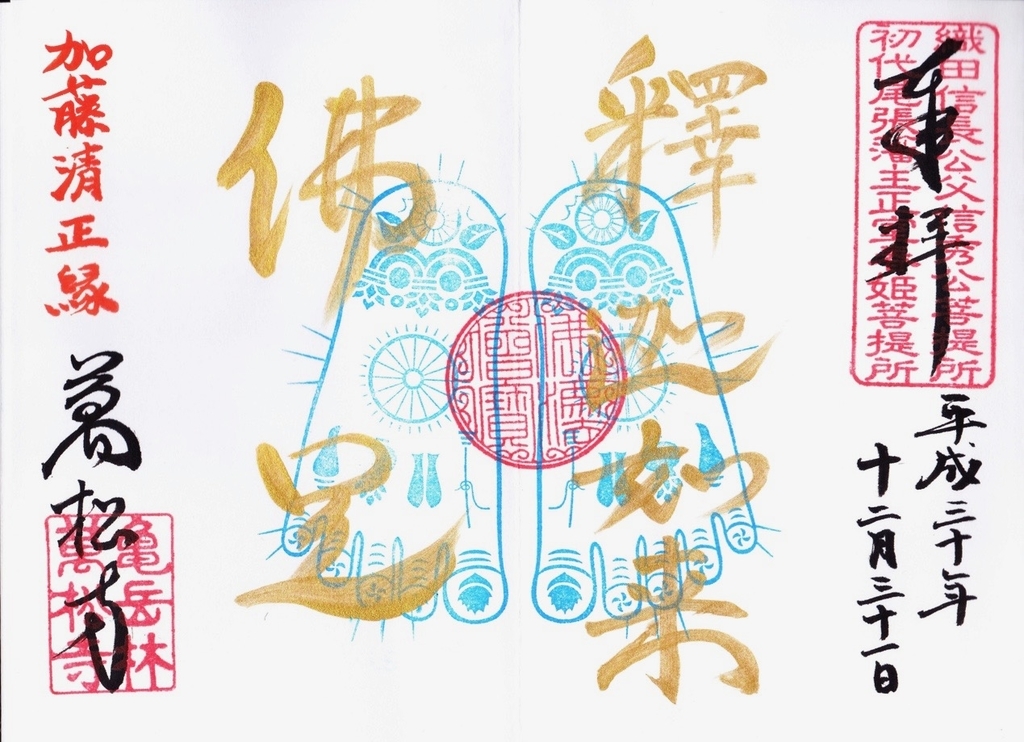 織田信長公父信秀公菩提所
初代尾張藩主正室春姫菩提所
奉拝
平成三十年
十二月三十一日
釋迦如来
佛足
加藤清正縁
萬松寺
亀岳林
萬松寺